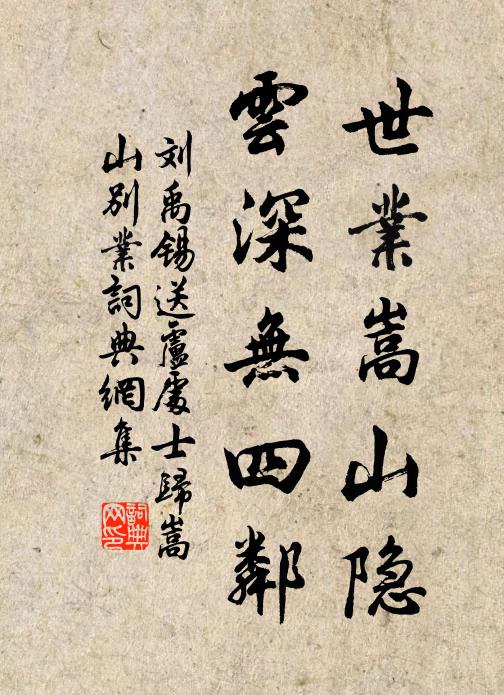 世業嵩山隐
雲深無四鄰
刘禹锡送盧處士歸嵩
山别業詞典網集
詞典网印